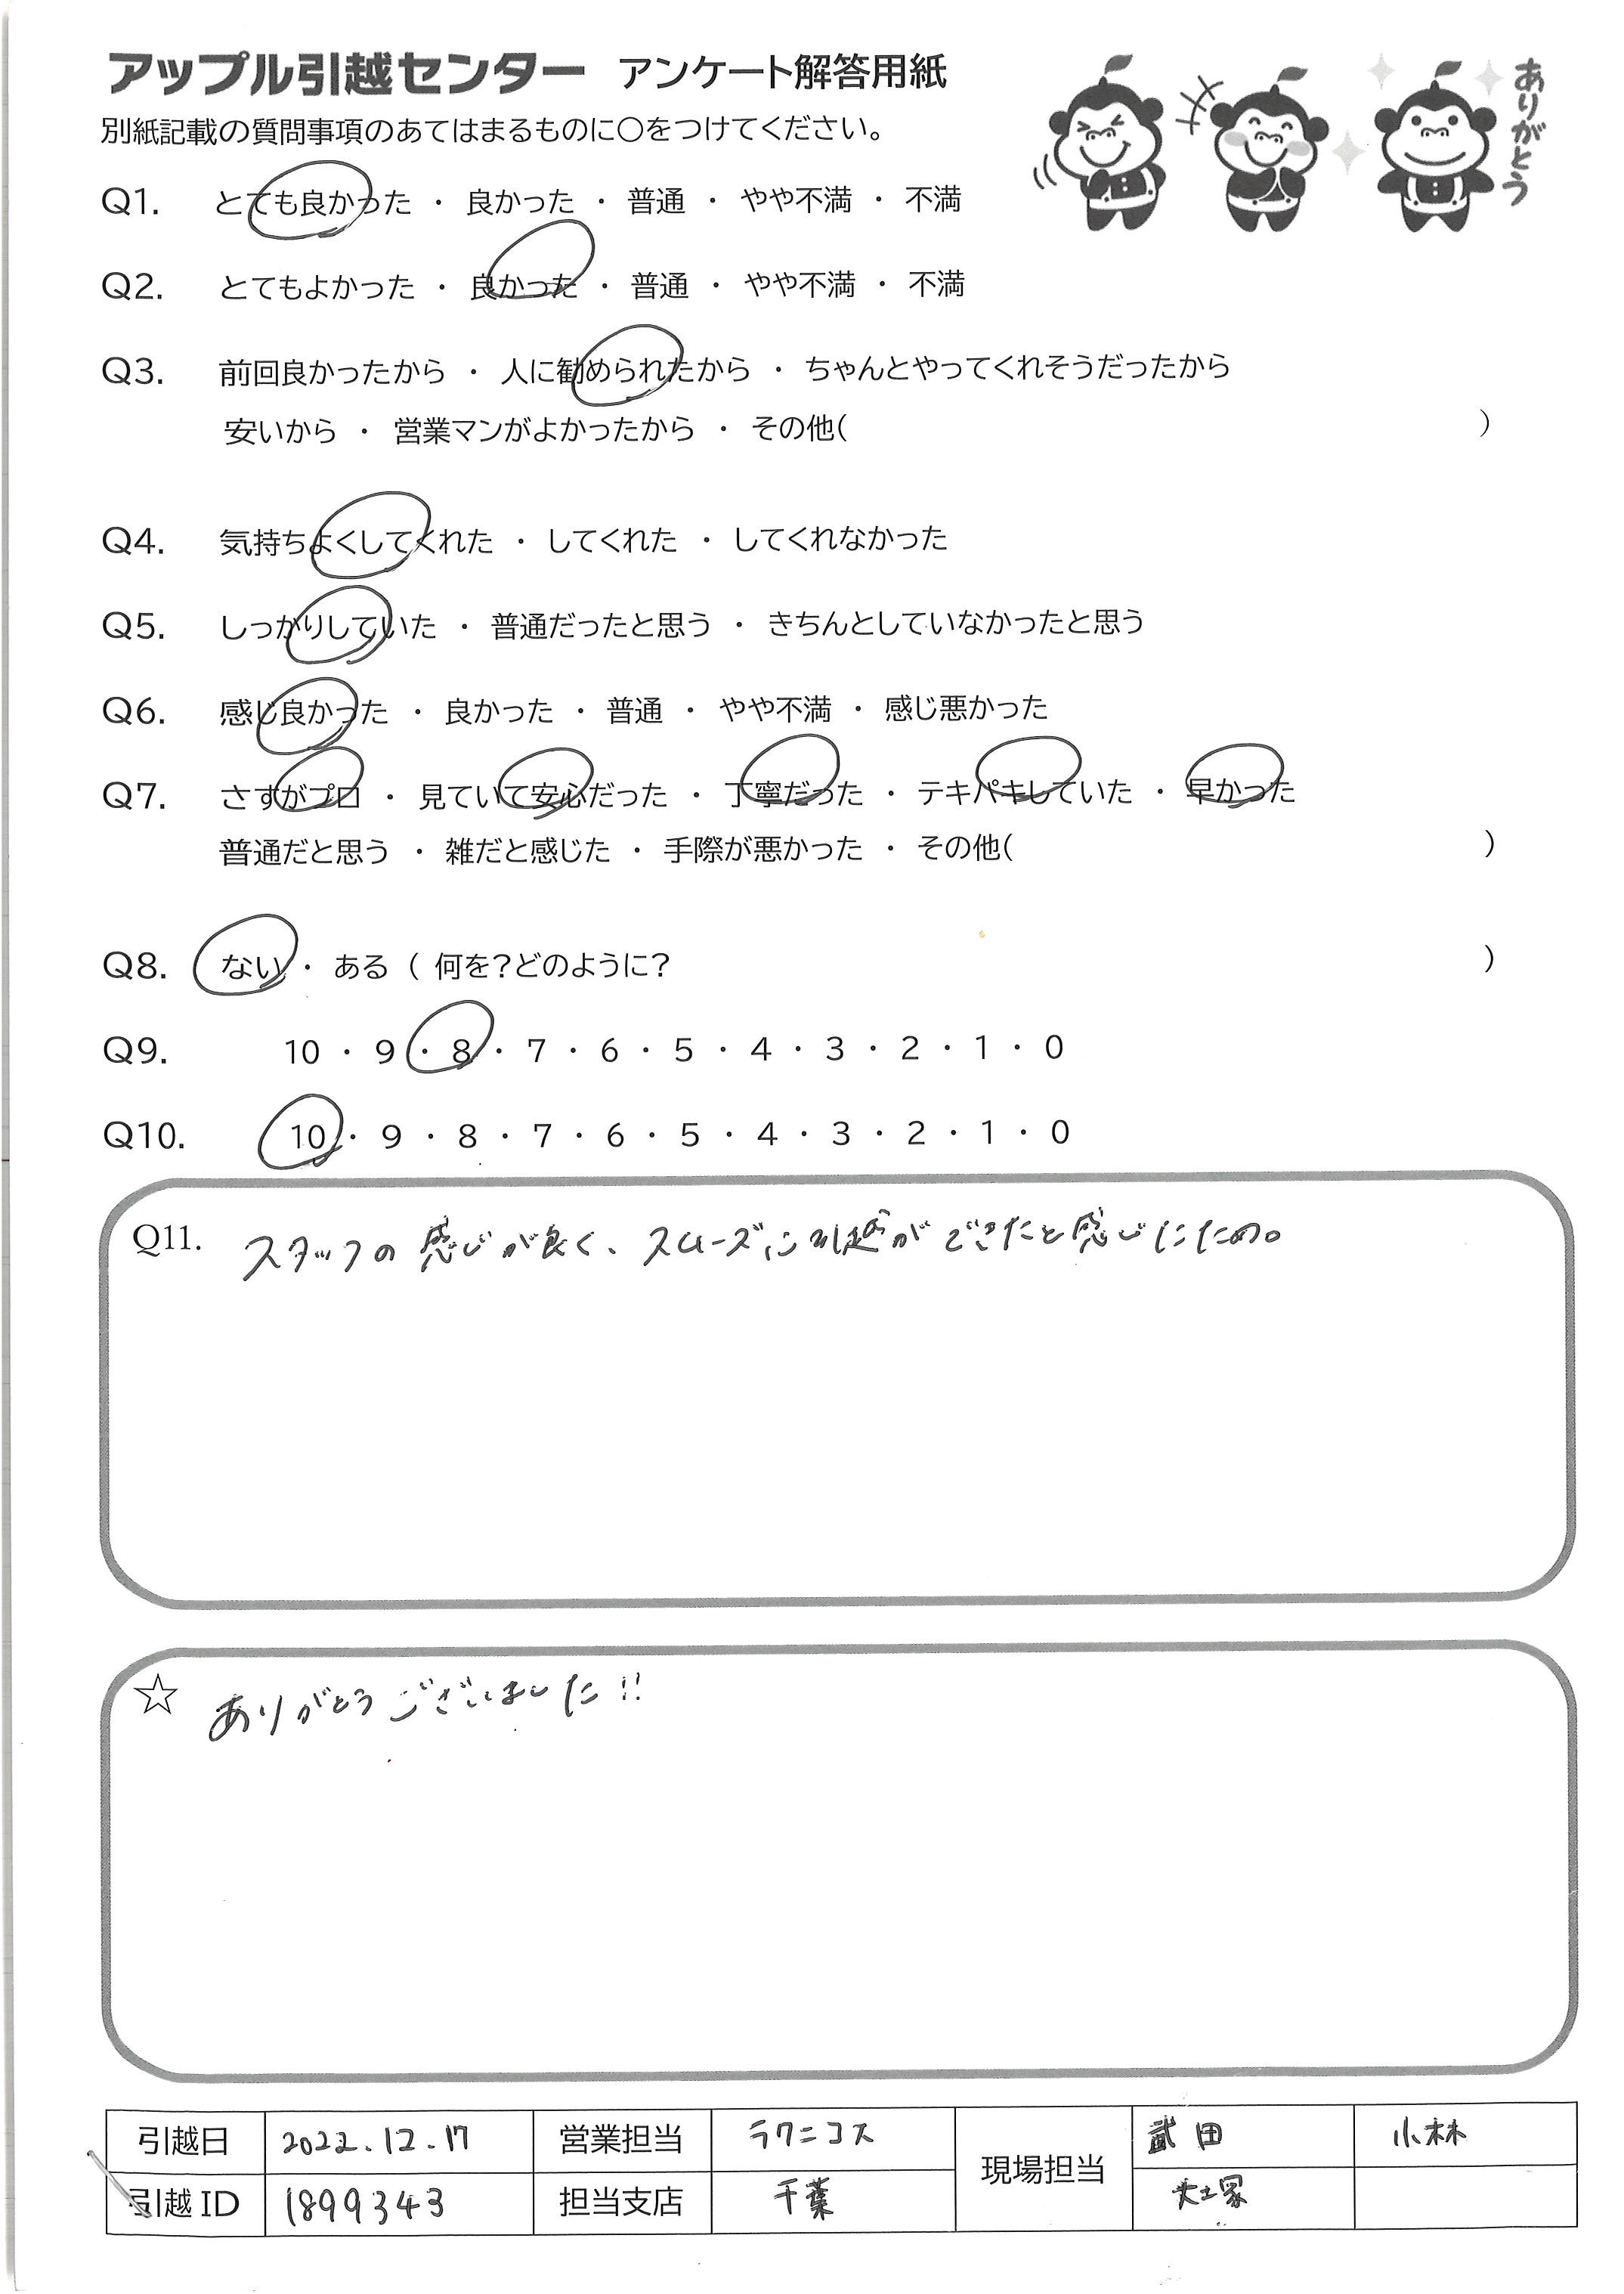 アップル引越センター アンケート解答用紙
ありがとう
別紙記載の質問事項のあてはまるものに○をつけてください。
Q1. とても良かった ・ 良かった ・ 普通 ・ やや不満 ・ 不満
Q2. とてもよかった ・ 良かった ・ 普通 ・ やや不満 ・ 不満
Q3. 前回良かったから ・ 人に勧められたから ・ ちゃんとやってくれそうだったから
安いから ・ 営業マンがよかったから ・ その他( )
Q4. 気持ちよくしてくれた ・ してくれた ・ してくれなかった
Q5. しっかりしていた ・ 普通だったと思う ・ きちんとしていなかったと思う
Q6. 感じ良かった ・ 良かった ・ 普通 ・ やや不満 ・ 感じ悪かった
Q7. さすがプロ ・ 見ていて安心だった ・ 丁寧だった ・ テキパキしていた ・ 早かった
普通だと思う ・ 雑だと感じた ・ 手際が悪かった ・ その他( )
Q8. ない ・ ある ( 何を?どのように? )
Q9. 10 ・ 9 ・ 8 ・ 7 ・ 6 ・ 5 ・ 4 ・ 3 ・ 2 ・ 1 ・ 0
Q10. 10 ・ 9 ・ 8 ・ 7 ・ 6 ・ 5 ・ 4 ・ 3 ・ 2 ・ 1 ・ 0
Q11. スタッフの感じが良く、スムーズに引越しができたと感じたため。
☆ ありがとうございました!!
引越日 2022.12.17 営業担当 ラクニコス 現場担当 武田 小林
引越ID 1899343 担当支店 千葉